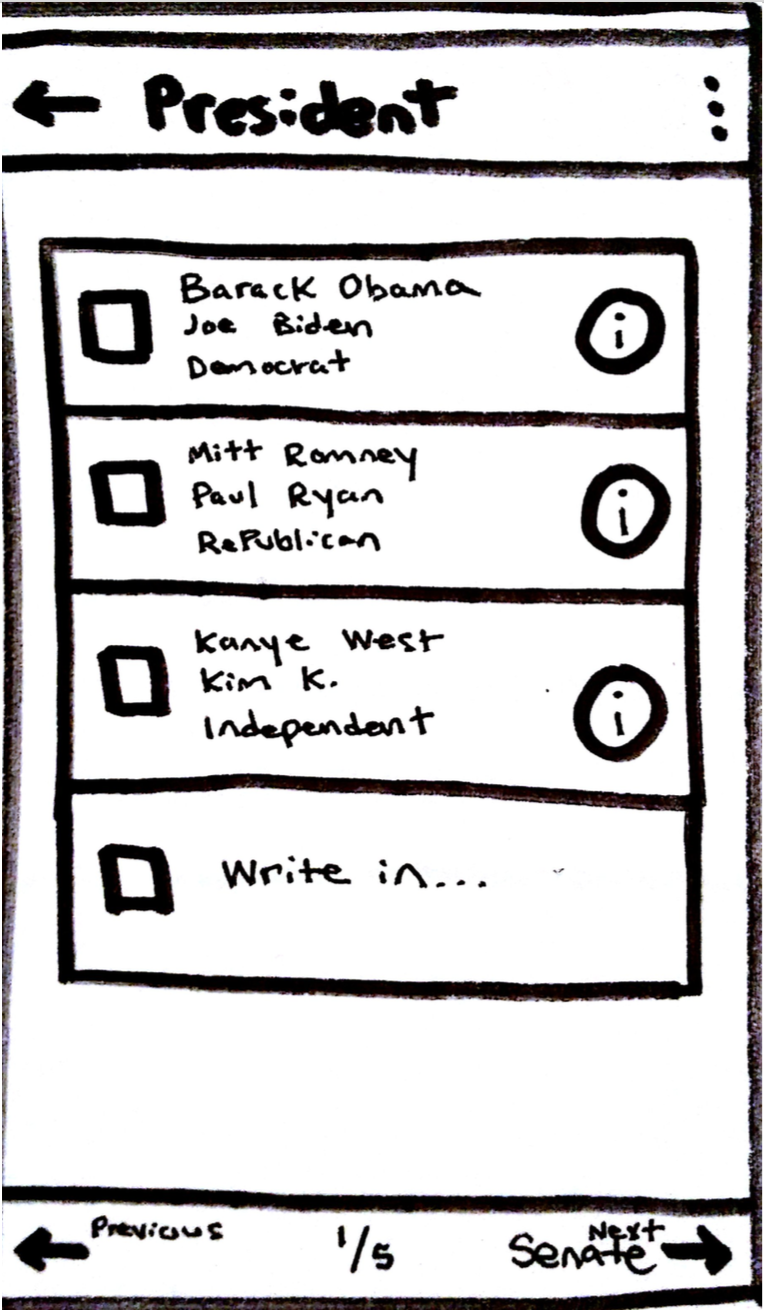 President
Barack Obama
Joe Biden
Democrat
i
Mitt Romney
Paul Ryan
Republican
i
Kanye West
Kim K.
Independent
i
Write in...
Previous
1/5
Next
Senate